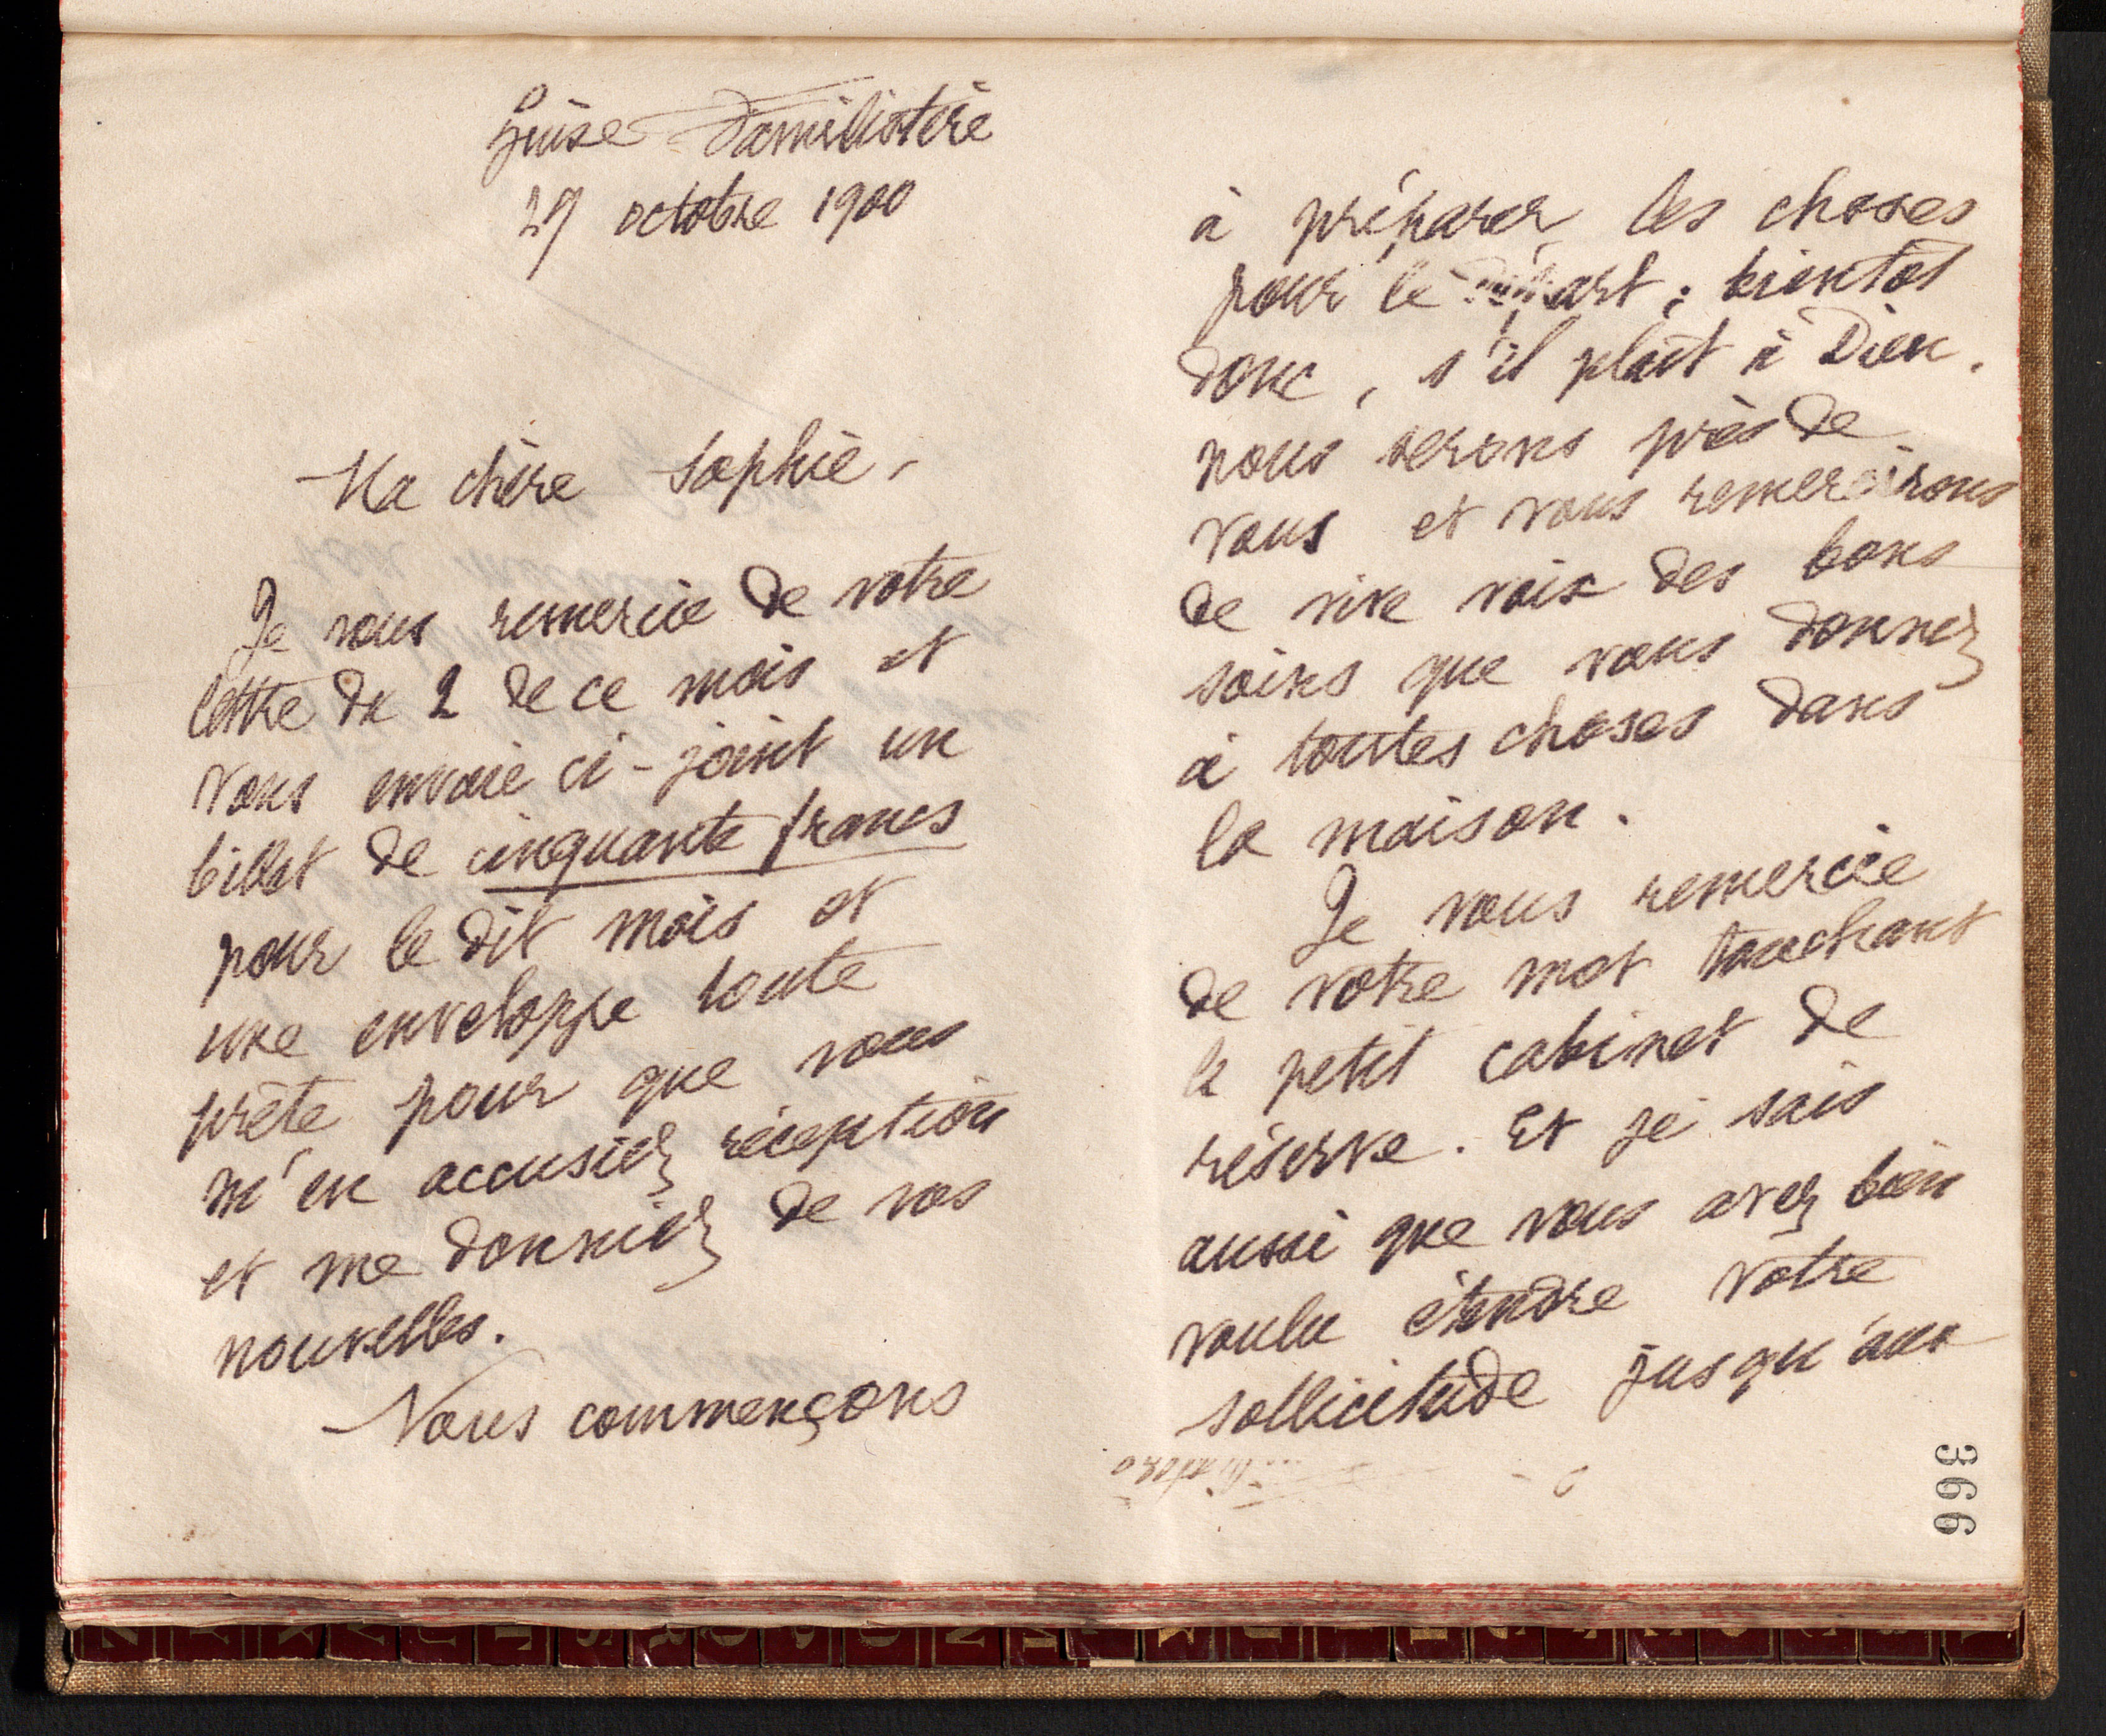 Guise Familistère
29 octobre 1900
Ma chère Sophie,
Je vous remercie de votre
lettre du 2 de ce mois et
vous envoie ci-joint un
billet de cinquante francs
pour le dit mois et
une enveloppe toute
prête pour que vous
m'en accusiez réception
et me donniez de vos
nouvelles.
Nous commençons
à préparer les choses
pour le départ ; bientôt
donc, s'il plaît à Dieu,
nous serons près de
vous et vous remercirons
de vive voix des bons
soins que vous donnez
à toutes choses dans
la maison.
Je vous remercie
de votre mot touchant
le petit cabinet de
réserve. Et je sais
aussi que vous avez bien
voulu étendre votre
sollicitude jusqu'aux
366